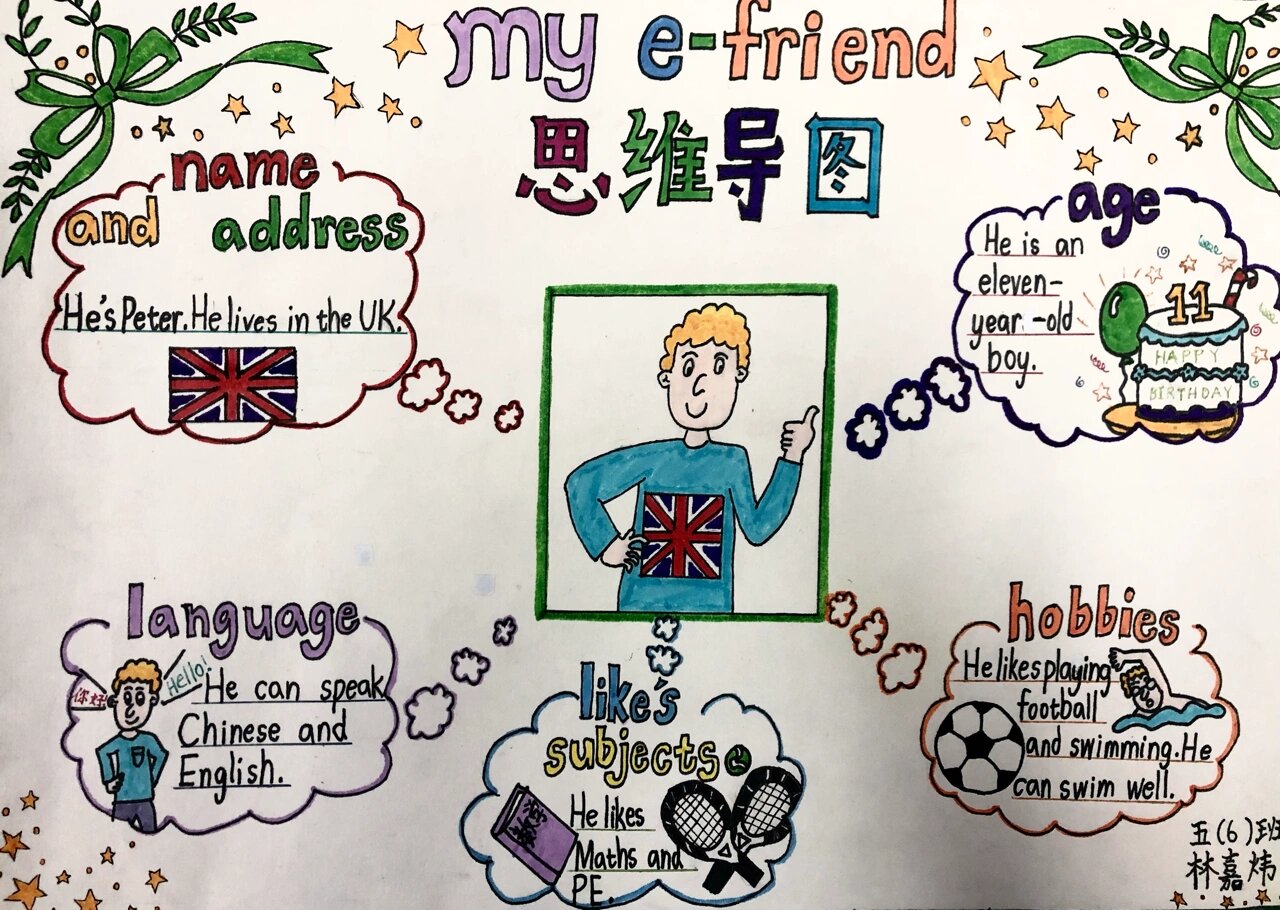 my e-friend
思维导图
name
and address
He's Peter. He lives in the UK.
age
He is an
eleven-
year-old
boy.
11
HAPPY
BIRTHDAY
language
你好
Hello!
He can speak
Chinese and
English.
like's
subjects
数学
He likes
Maths and
PE.
hobbies
He likes playing
football
and swimming. He
can swim well.
五(6)班
林嘉炜